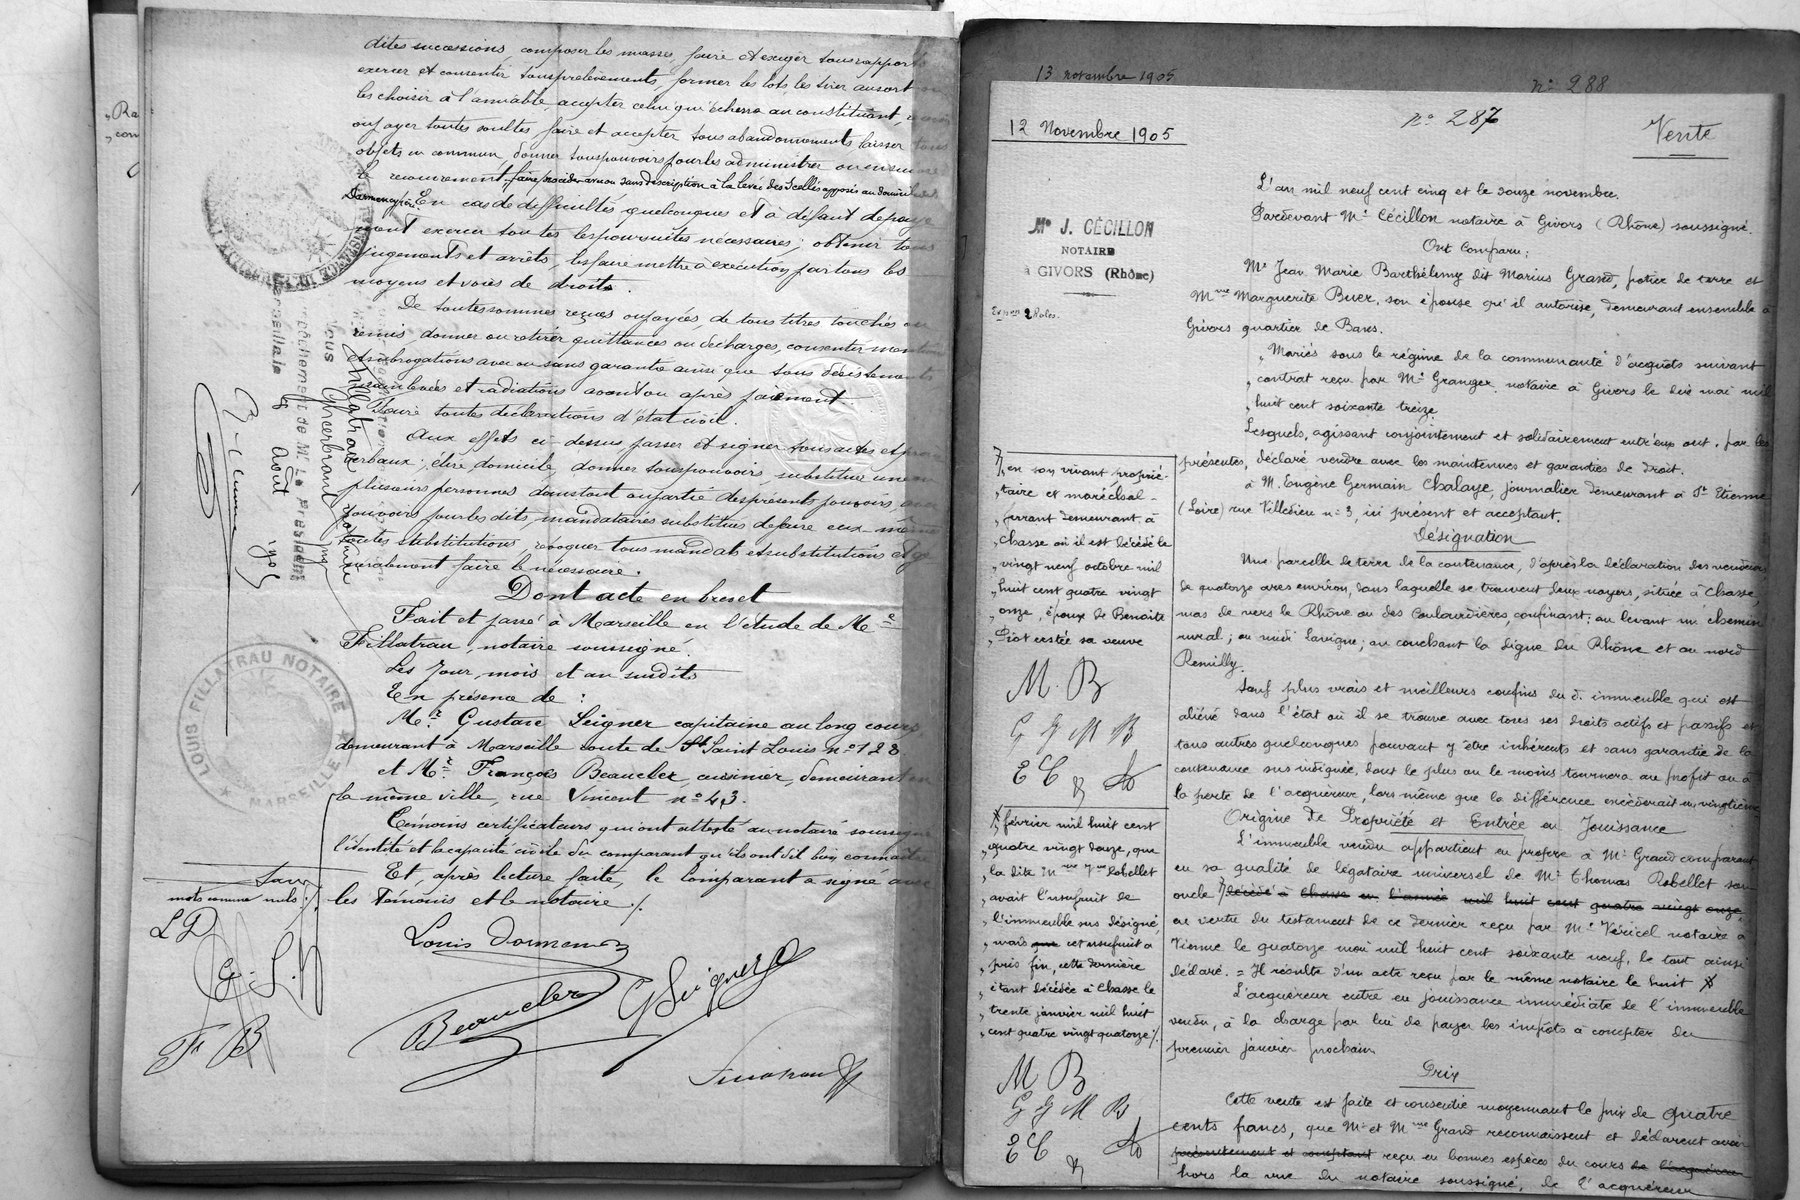 dites successions, composer les masses faire et exiger tous rapports
exercer et consentir tous prélèvements, former les lots les tirer au sort
les choisir à l'amiable, accepter celui qui échera au constituant,
ou payer toutes soultes faire et accepter tous abandonnements laisser tous
objets en commun, donner tous pouvoirs pour les administrer ou en suivre
le recouvrement, faire procéder avec ou sans description à la levée des scellés apposés au domicile
En cas de difficultés quelconques et à défaut de paye
ment exercer toutes les poursuites nécessaires; obtenir tous
jugements et arrêts, les faire mettre à exécution par tous les
moyens et voies de droits.
De toutes sommes reçues ou payées, de tous titres touchés ou
remis, donner ou retirer quittances ou décharges, consentir mentions
et subrogations avec ou sans garantie ainsi que tous désistements
mainlevées et radiations avant ou après paiement.
Faire toutes déclarations d'état civil.
Aux effets ci-dessus passer et signer tous actes et procès
verbaux; élire domicile, donner tous pouvoirs, substituer une ou
plusieurs personnes dans tout ou partie des présents pouvoirs, avec
pouvoirs pour les dits mandataires substitués de faire eux-mêmes
toutes substitutions, révoquer tous mandats et substitutions et gé
néralement faire le nécessaire.
Dont acte en brevet
Fait et passé à Marseille en l'étude de Me
Fillatrau, notaire soussigné.
Les jour, mois et an susdits
En présence de :
Mr. Gustave Seigner capitaine au long cours
demeurant à Marseille route de St Saint Louis no 128
et Mr. François Beaucler, cuisinier, demeurant en
la même ville, rue Vincent no 43.
Témoins certificateurs qui ont attesté au notaire soussigné
l'identité et la capacité civile du comparant qu'ils ont dit bien connaître
Et, après lecture faite, le comparant a signé avec
les témoins et le notaire ./.
LD
G. S.
F B
Beaucler
G Seigner
LOUIS FILLATRAU NOTAIRE
MARSEILLE
13 novembre 1905
no 288
12 Novembre 1905
no 287
Vente
Me J. CÉCILLON
NOTAIRE
à GIVORS (Rhône)
2 Roles.
L'an mil neuf cent cinq et le douze novembre.
Pardevant Me Cécillon notaire à Givors (Rhône) soussigné.
Ont Comparu:
Mr Jean Marie Barthélemy dit Marius Grand, potier de terre et
Mme Marguerite Buer, son épouse qu'il autorise, demeurant ensemble à
Givors quartier de Bans.
"Mariés sous le régime de la communauté d'acquêts suivant
"contrat reçu par Me Granger notaire à Givors le dix mai mil
"huit cent soixante treize.
Lesquels, agissant conjointement et solidairement entr'eux ont, par les
présentes, déclaré vendre avec les maintenues et garanties de droit.
à M. Eugène Germain Chalaye, journalier demeurant à St Etienne
(Loire) rue Villedieu no 3, ici présent et acceptant.
Désignation
Une parcelle de terre de la contenance, d'après la déclaration des vendeurs
de quatorze ares environ, dans laquelle se trouvent deux noyers, située à Chasse,
mas de vers le Rhône ou des Coulaudières, confinant: au levant un chemin
rural; au midi Lavigne; au couchant la digue du Rhône et au nord
Remilly.
Sauf plus vrais et meilleurs confins du d. immeuble qui est
aliéné dans l'état où il se trouve avec tous ses droits actifs et passifs et
tous autres quelconques pouvant y être inhérents et sans garantie de la
contenance sus indiquée, dont le plus ou le moins tournera au profit ou à
la perte de l'acquéreur, lors même que la différence excéderait un vingtième.
Origine de Propriété et Entrée en Jouissance
L'immeuble vendu appartient en propre à Mr Grand comparant
en sa qualité de légataire universel de Mr Thomas Robellet son
oncle décédé à Chasse en l'année mil huit cent quatre vingt onze,
en vertu du testament de ce dernier reçu par Me Véricel notaire à
Vienne le quatorze mai mil huit cent soixante neuf, le tout ainsi
déclaré. = Il résulte d'un acte reçu par le même notaire le huit
L'acquéreur entre en jouissance immédiate de l'immeuble
vendu, à la charge par lui de payer les impôts à compter du
premier janvier prochain
Prix
Cette vente est faite et consentie moyennant le prix de quatre
cents francs, que Mr et Mme Grand reconnaissent et déclarent avoir
présentement et comptant reçu en bonnes espèces du cours de l'acquéreur
hors la vue du notaire soussigné, de l'acquéreur
"en son vivant, proprié-
"taire et maréchal-
"ferrant demeurant à
"Chasse où il est décédé le
"vingt neuf octobre mil
"huit cent quatre vingt
"onze, époux de Benoite
"Piot restée sa veuve
M. B
G J M B
E C
"février mil huit cent
"quatre vingt douze, que
"la dite Mme Vve Robellet
"avait l'usufruit de
"l'immeuble sus désigné,
"mais que cet usufruit a
"pris fin, cette dernière
"étant décédée à Chasse le
"trente janvier mil huit
"cent quatre vingt quatorze /.
M B
G J M B
E C